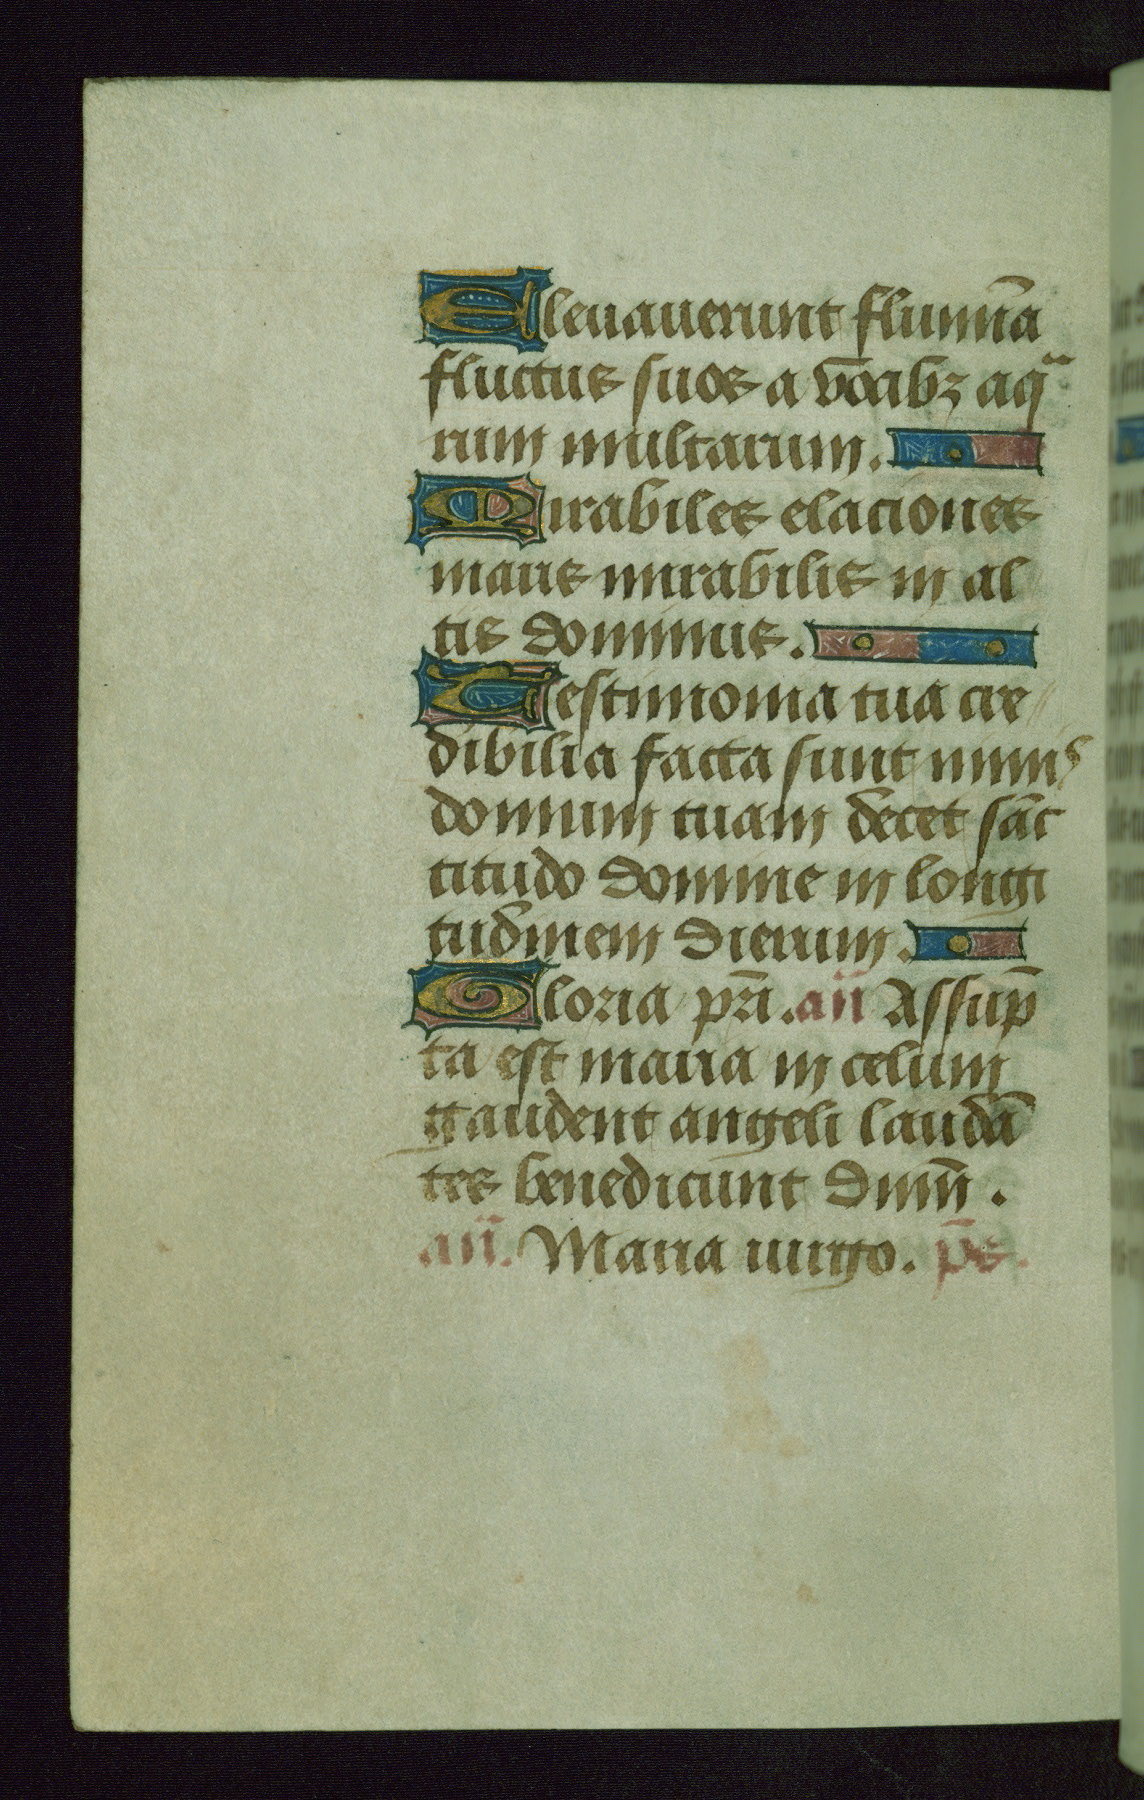 Eleuauerunt flumīa
fluctus suos a vocibꝫ aqͣ
rum multarum.
Mirabiles elaciones
maris mirabilis in al
tis dominus.
Testimonia tua cre
dibilia facta sunt nimis
domum tuam decet sāc
titudo domine in longi
tudinem dierum.
Gloria pr̄i. an̄ Assup̄
ta est maria in celum
gaudent angeli laudā
tes benedicunt dnm̄.
an̄. Maria uirgo. p̄s.